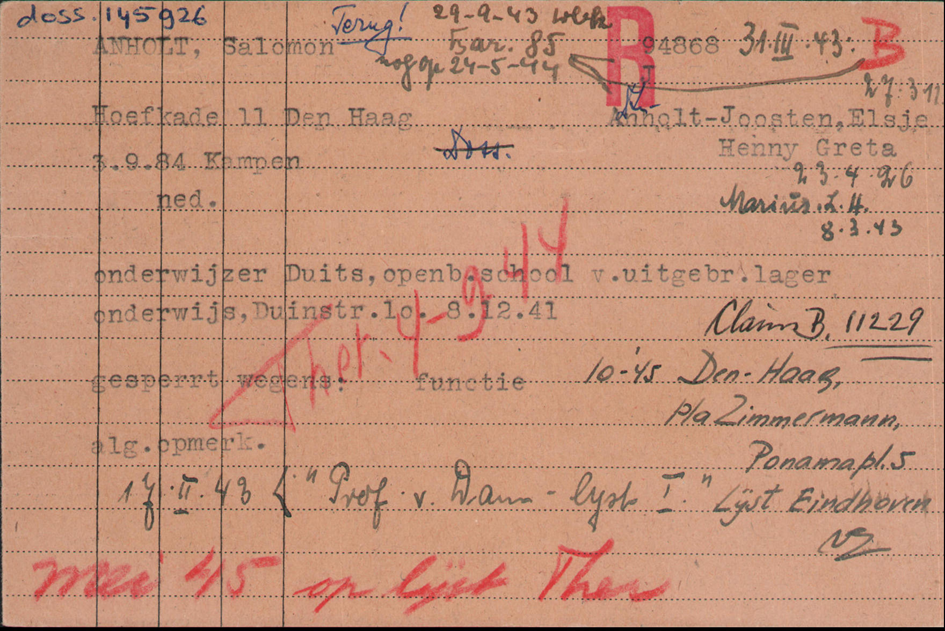 doss. 145926
Terug!
29-9-43 Wbk
ANHOLT, Salomon
Bar. 85
R
94868 31·III·43·
B
nog op 24-5-44
27.3.11
Hoefkade 11 Den Haag
Anholt-Joosten, Elsje
Doss.
3.9.84 Kampen
Henny Greta
23.4.26
ned.
Marius.L.H.
8.3.43
onderwijzer Duits,openb.school v.uitgebr.lager
onderwijs,Duinstr.10. 8.12.41
Ther. 4-9 44
Claim B. 11229
gesperrt wegens: functie
10-'45 Den-Haag,
p/a Zimmermann,
alg.opmerk.
Ponamapl.5
17·II·43 { "Prof. v. Dam-lyst I."
Lijst Eindhoven
mei '45 op lijst Ther